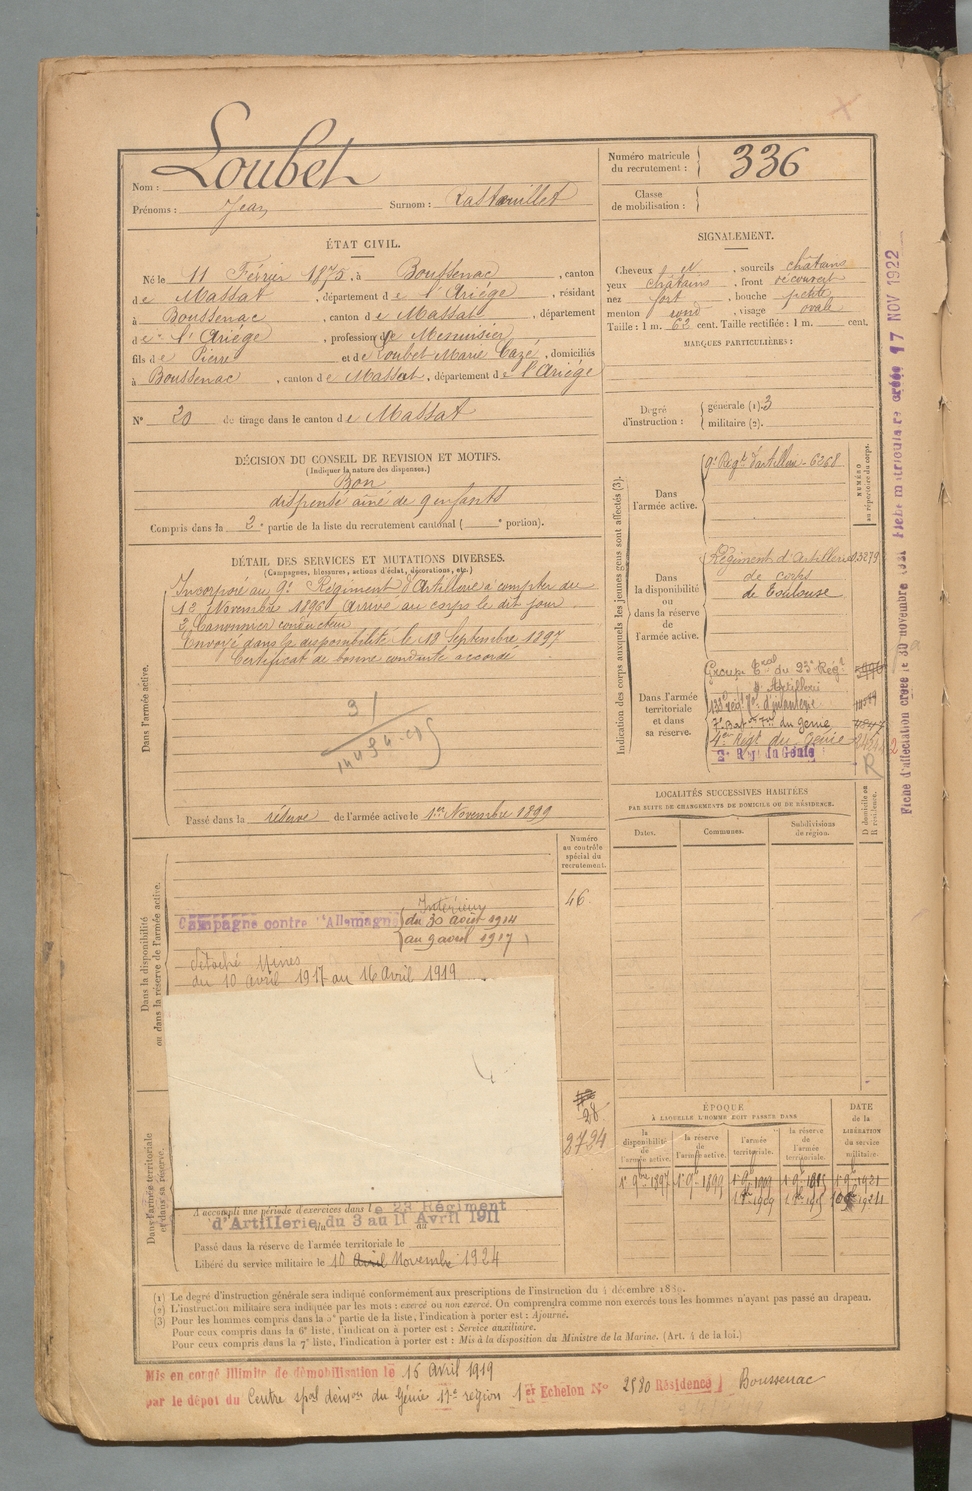 Nom : Loubet
Prénoms : Jean Surnom :
Numéro matricule du recrutement : 336
Classe de mobilisation :
ÉTAT CIVIL.
Né le 11 Février 1875, à Boussenac, canton
de Massat, département de l'Ariége, résidant
à Boussenac, canton de Massat, département
de l'Ariége, profession de Menuisier
fils de Pierre et de Loubet Marie Cazé, domiciliés
à Boussenac, canton de Massat, département de l'Ariége
N° 20 de tirage dans le canton de Massat
SIGNALEMENT.
Cheveux et sourcils châtains
yeux châtains, front découvert
nez fort, bouche petite
menton rond, visage ovale
Taille : 1 m. 63 cent. Taille rectifiée : 1 m. cent.
MARQUES PARTICULIÈRES :
Degré d'instruction : générale (1). 3
militaire (2).
DÉCISION DU CONSEIL DE REVISION ET MOTIFS.
(Indiquer la nature des dispenses.)
Bon
dispensé aîné de 9 enfants
Compris dans la 2e partie de la liste du recrutement cantonal ( e portion).
DÉTAIL DES SERVICES ET MUTATIONS DIVERSES.
(Campagnes, blessures, actions d'éclat, décorations, etc.)
Dans l'armée active.
Incorporé au 9e Régiment d'Artillerie à compter du
12 Novembre 1896 Arrivé au corps le dit jour.
2e Canonnier conducteur
Envoyé dans la disponibilité le 18 Septembre 1897
Certificat de bonne conduite accordé
31
Passé dans la réserve de l'armée active le 1er Novembre 1899
Indication des corps auxquels les jeunes gens sont affectés (3).
NUMÉRO au répertoire du corps.
Dans l'armée active.
9e Régt d'artillerie 6268
Dans la disponibilité ou dans la réserve de l'armée active.
Régiment d'Artillerie
de corps
de Toulouse
Dans l'armée territoriale et dans sa réserve.
Groupe Tral du 23e Régt
d'Artillerie
133e régt Tal d'infanterie
7e Bat on Tal du génie
4e Régt du Génie
2e Rgt du Génie
R
Fiche matriculaire créée 17 NOV 1922
Fiche d'affectation créée le 30 novembre
LOCALITÉS SUCCESSIVES HABITÉES
PAR SUITE DE CHANGEMENTS DE DOMICILE OU DE RÉSIDENCE.
D domicile ou R résidence.
Dates. Communes. Subdivisions de région.
Numéro au contrôle spécial du recrutement.
46
Dans la disponibilité ou dans la réserve de l'armée active.
Campagne contre l'Allemagne
Intérieur
du 30 août 1914
au 9 avril 1917
Détaché Mines
du 10 Avril 1917 au 16 Avril 1919
28
2724
Dans l'armée territoriale et dans sa réserve.
A accompli une période d'exercices dans le 23 Régiment
d'Artillerie du 3 au 11 Avril 1911
Passé dans la réserve de l'armée territoriale le
Libéré du service militaire le 10 Avril Novembre 1924
ÉPOQUE
À LAQUELLE L'HOMME DOIT PASSER DANS
DATE de la LIBÉRATION du service militaire.
la disponibilité de l'armée active. la réserve de l'armée active. l'armée territoriale. la réserve de l'armée territoriale.
1er 9bre 1897 1er 9bre 1899
(1) Le degré d'instruction générale sera indiqué conformément aux prescriptions de l'instruction du 4 décembre 1889.
(2) L'instruction militaire sera indiquée par les mots : exercé ou non exercé. On comprendra comme non exercés tous les hommes n'ayant pas passé au drapeau.
(3) Pour les hommes compris dans la 5e partie de la liste, l'indication à porter est : Ajourné.
Pour ceux compris dans la 6e liste, l'indication à porter est : Service auxiliaire.
Pour ceux compris dans la 7e liste, l'indication à porter est : Mis à la disposition du Ministre de la Marine. (Art. 4 de la loi.)
Mis en congé illimité de démobilisation le 15 Avril 1919
par le dépôt du Centre spal démon du Génie 17e région 1er Echelon N° 2580 Résidence Boussenac